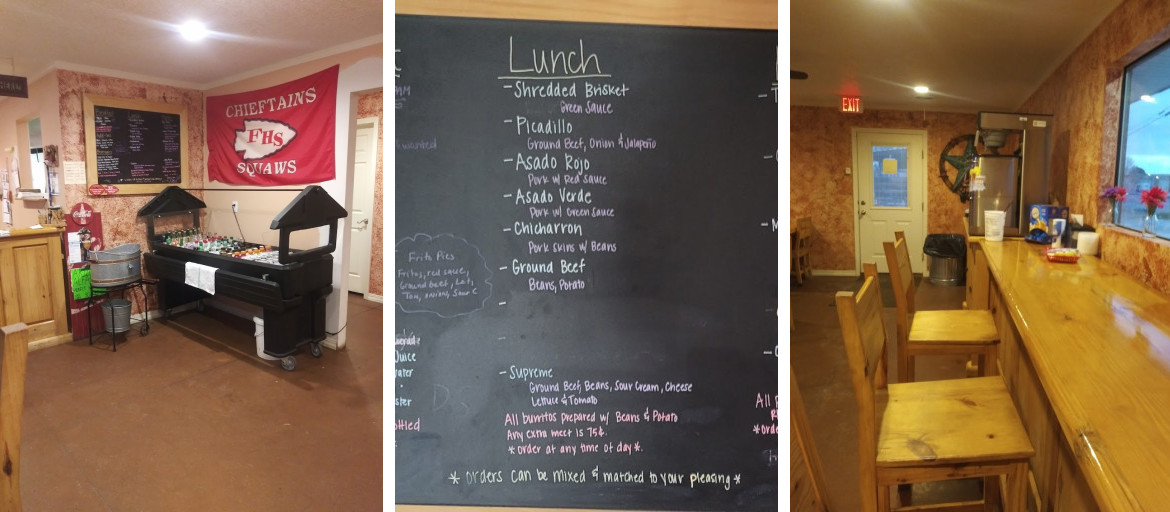 CHIEFTAINS
FHS
SQUAWS
Coca-Cola
Lunch
- Shredded Brisket
Green Sauce
- Picadillo
Ground Beef, Onion & Jalapeño
- Asado Rojo
Pork w/ Red Sauce
- Asado Verde
Pork w/ Green Sauce
- Chicharron
Pork skins w/ Beans
- Ground Beef
Beans, Potato
-
-
- Supreme
Ground Beef, Beans, Sour Cream, Cheese
Lettuce & Tomato
All burritos prepared w/ Beans & Potato
Any extra meat is 75¢.
*order at any time of day*.
* orders can be mixed & matched to your pleasing *
Frito Pies
Fritos, red sauce,
Ground beef, Let,
Tom, onions, Sour C
Juice
All
*orde
EXIT